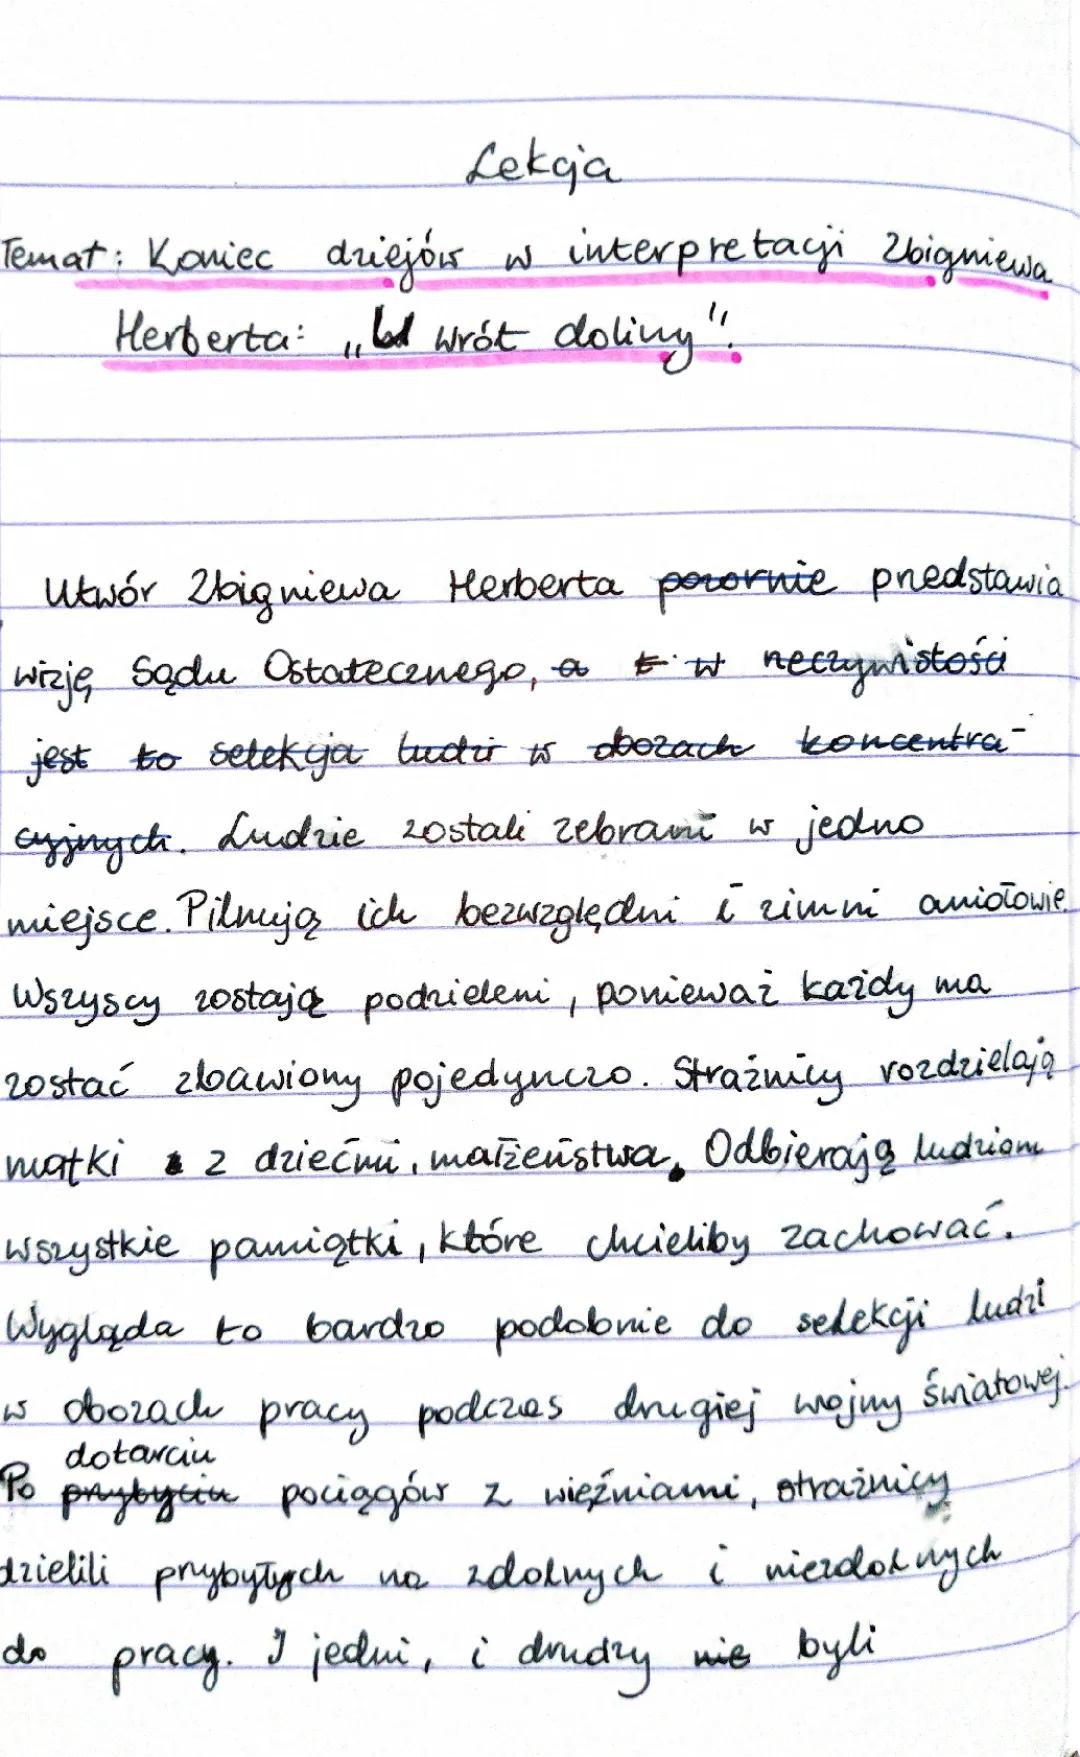 Lekcja
Temat: Koniec dziejów w interpretacji Zbigniewa
Herberta: „U wrót doliny".
Utwór Zbigniewa Herberta pozornie przedstawia
wizję Sądu Ostatecznego, a w rzeczywistości
jest to selekcja ludzi w obozach koncentra-
cyjnych. Ludzie zostali zebrani w jedno
miejsce. Pilnują ich bezwzględni i zimni aniołowie.
Wszyscy zostają podzieleni, ponieważ każdy ma
zostać zbawiony pojedynczo. Strażnicy rozdzielają
matki z dziećmi, małżeństwa. Odbierają ludziom
wszystkie pamiątki, które chcieliby zachować.
Wygląda to bardzo podobnie do selekcji ludzi
w obozach pracy podczas drugiej wojny światowej.
dotarciu
Po przybyciu pociągów z więźniami, strażnicy
dzielili przybyłych na zdolnych i niezdolnych
do pracy. I jedni, i drudzy nie byli